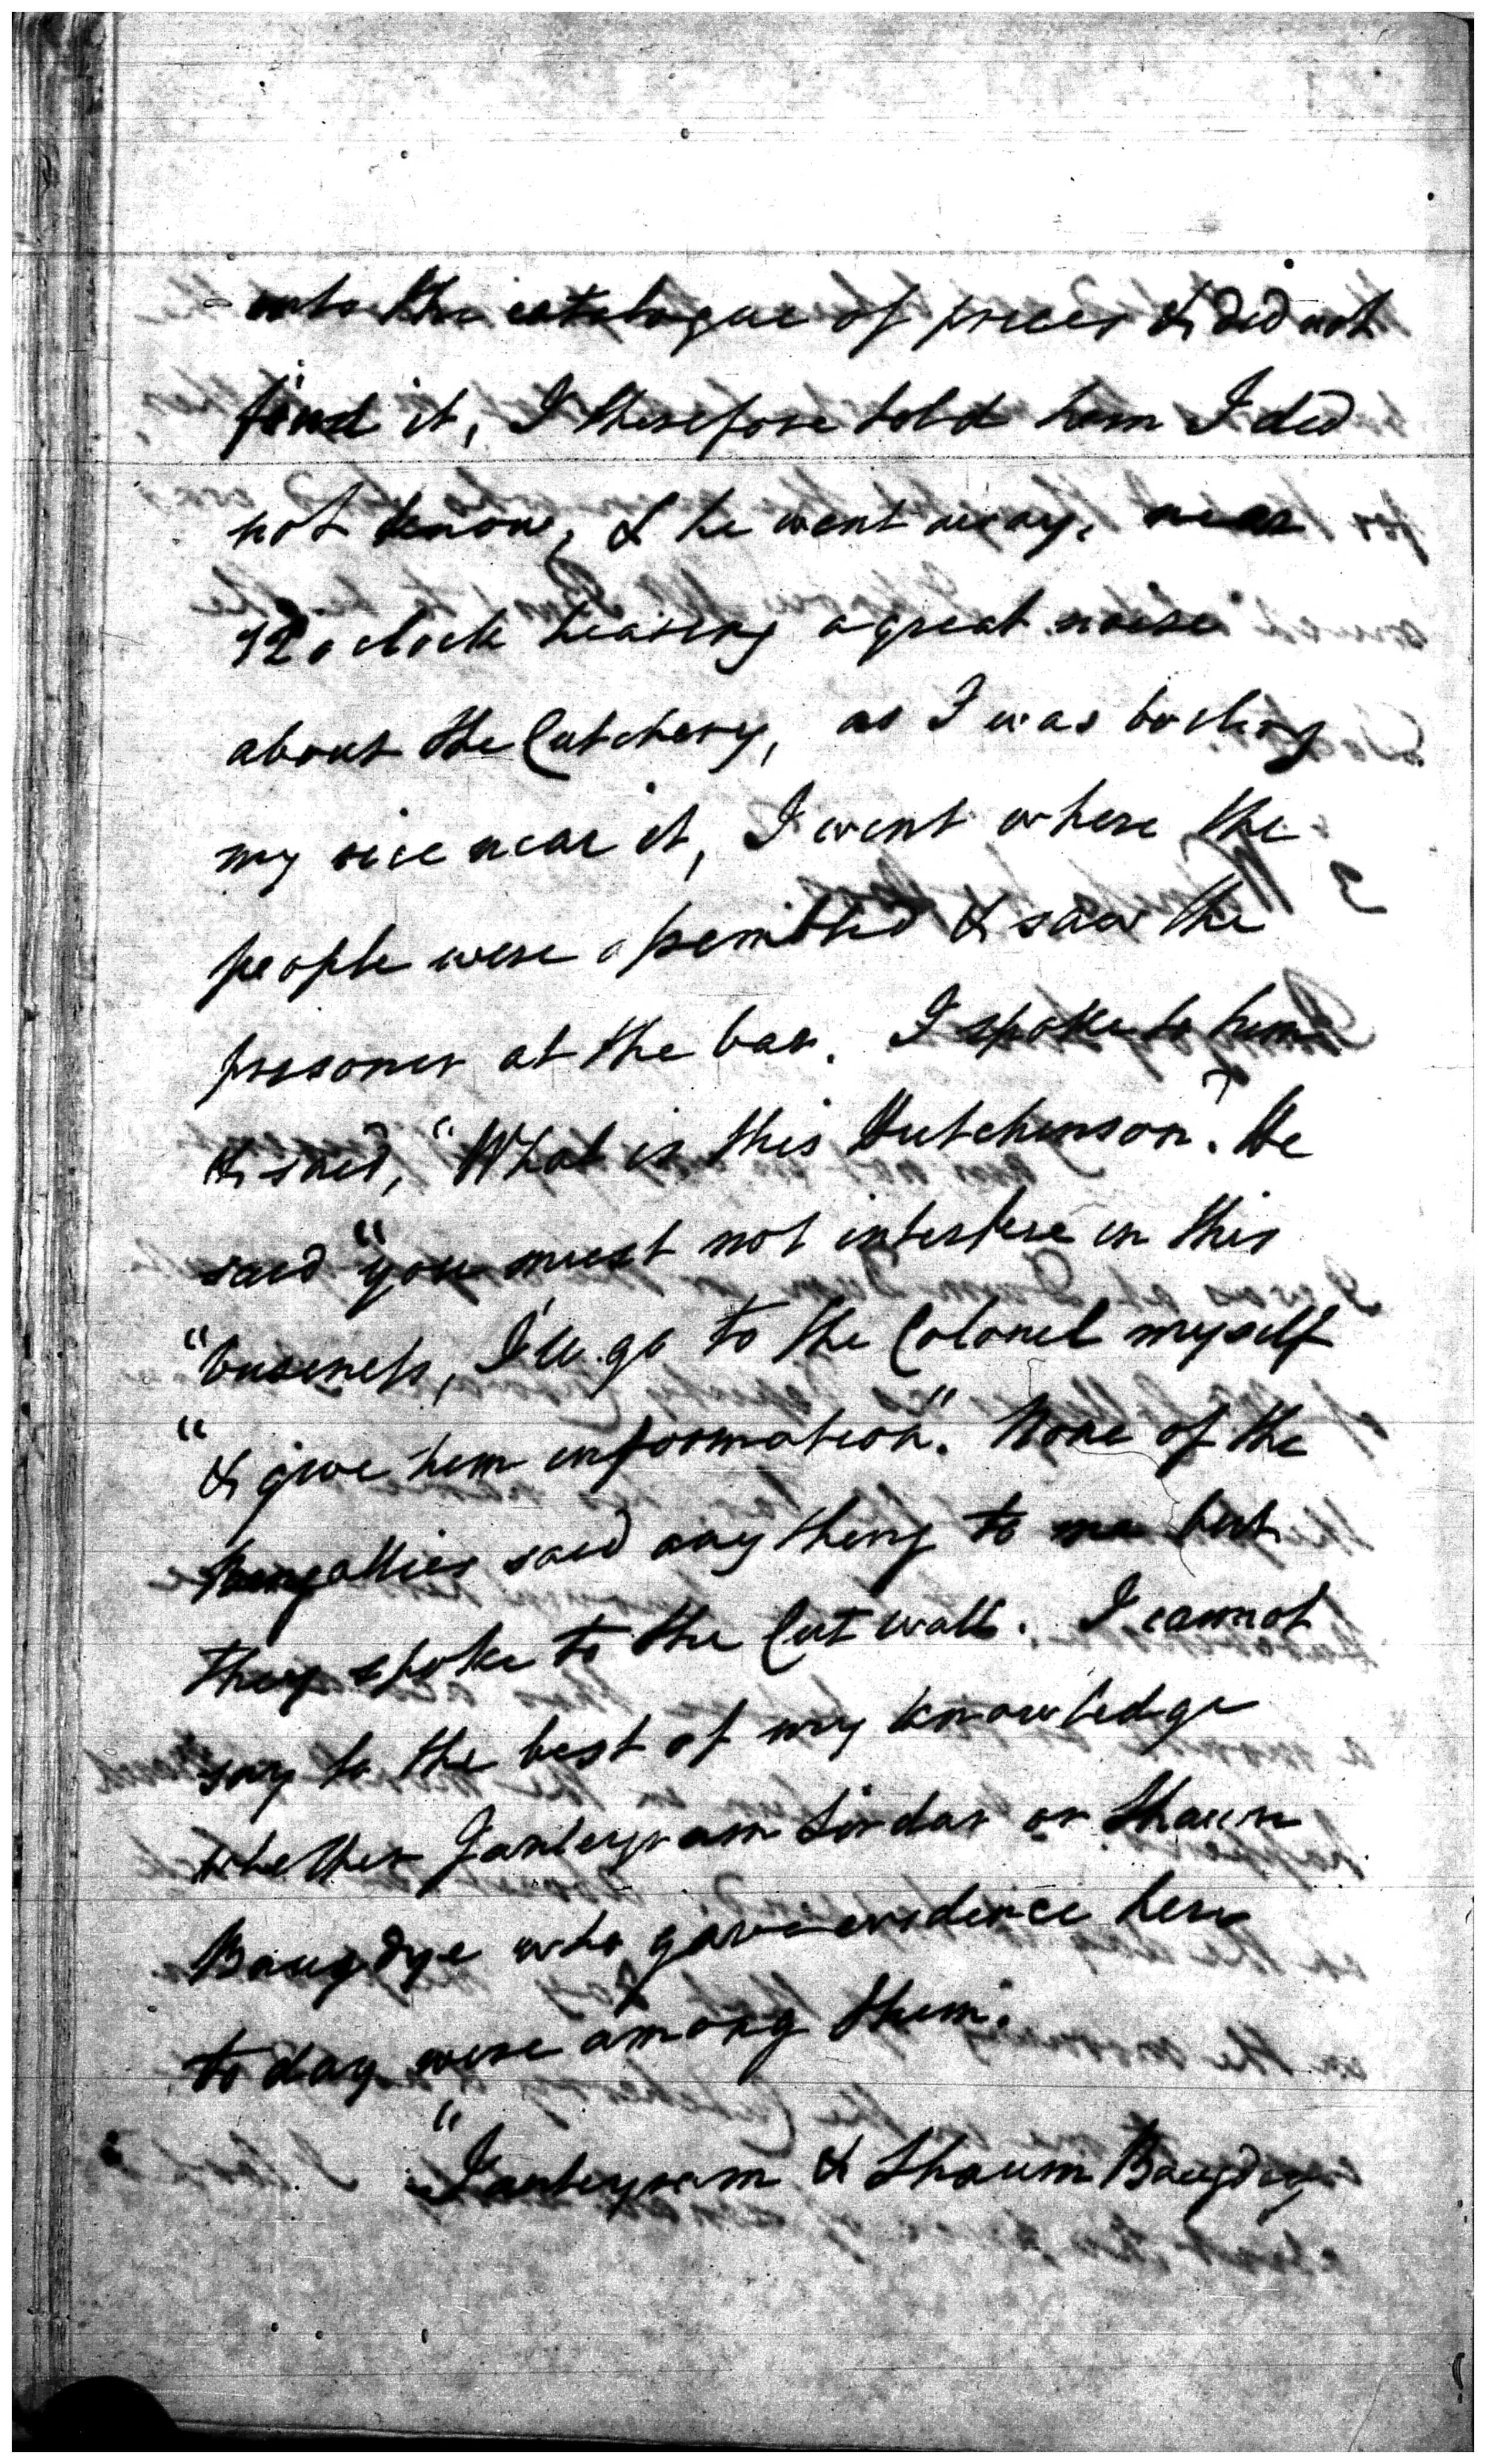 - into the catalogue of prices & did not
find it, I therefore told him I did
not know, & he went away, near
12 o clock hearing a great noise
about the Cutchery, as I was boiling
my rice near it, I went where the
people were assembled & saw the
prisoner at the bar. I spoke to him
& said, "What is this Hutchinson"? He
said "you must not interfere in this
"business, I'll go to the Colonel myself
"& give him information". None of the
Bengallies said any thing to me but
they spoke to the Cutwall. I cannot
say to the best of my knowledge
whether Janteyram Sirdar or Shaum
Baugdye who gave evidence here
to day were among them.
"Janteyram & Shaum Baugdye